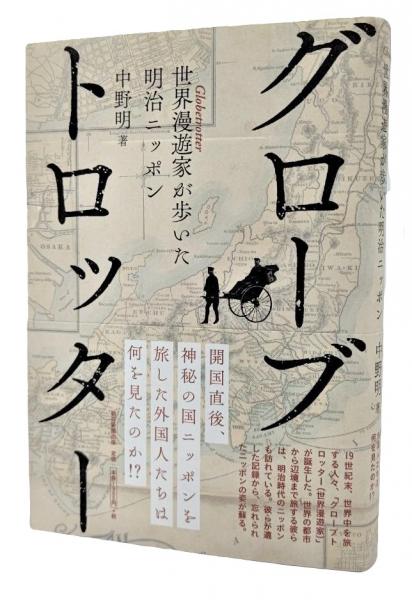 グローブ
トロッター
Globetrotter
世界漫遊家が歩いた
明治ニッポン
中野明 著
開国直後、
神秘の国ニッポンを
旅した外国人たちは
何を見たのか!?
19世紀末、世界中を旅
する人々、「グローブト
ロッター(世界漫遊家)」
が誕生した。世界の都市
から辺境まで旅する彼ら
は、明治時代のニッポン
も訪れている。彼らが遺
した記録から、忘れられ
たニッポンの姿が蘇る。
世界漫遊家が歩いた明治ニッポン
中野明
OSAKA
TOKYO
IWAKI